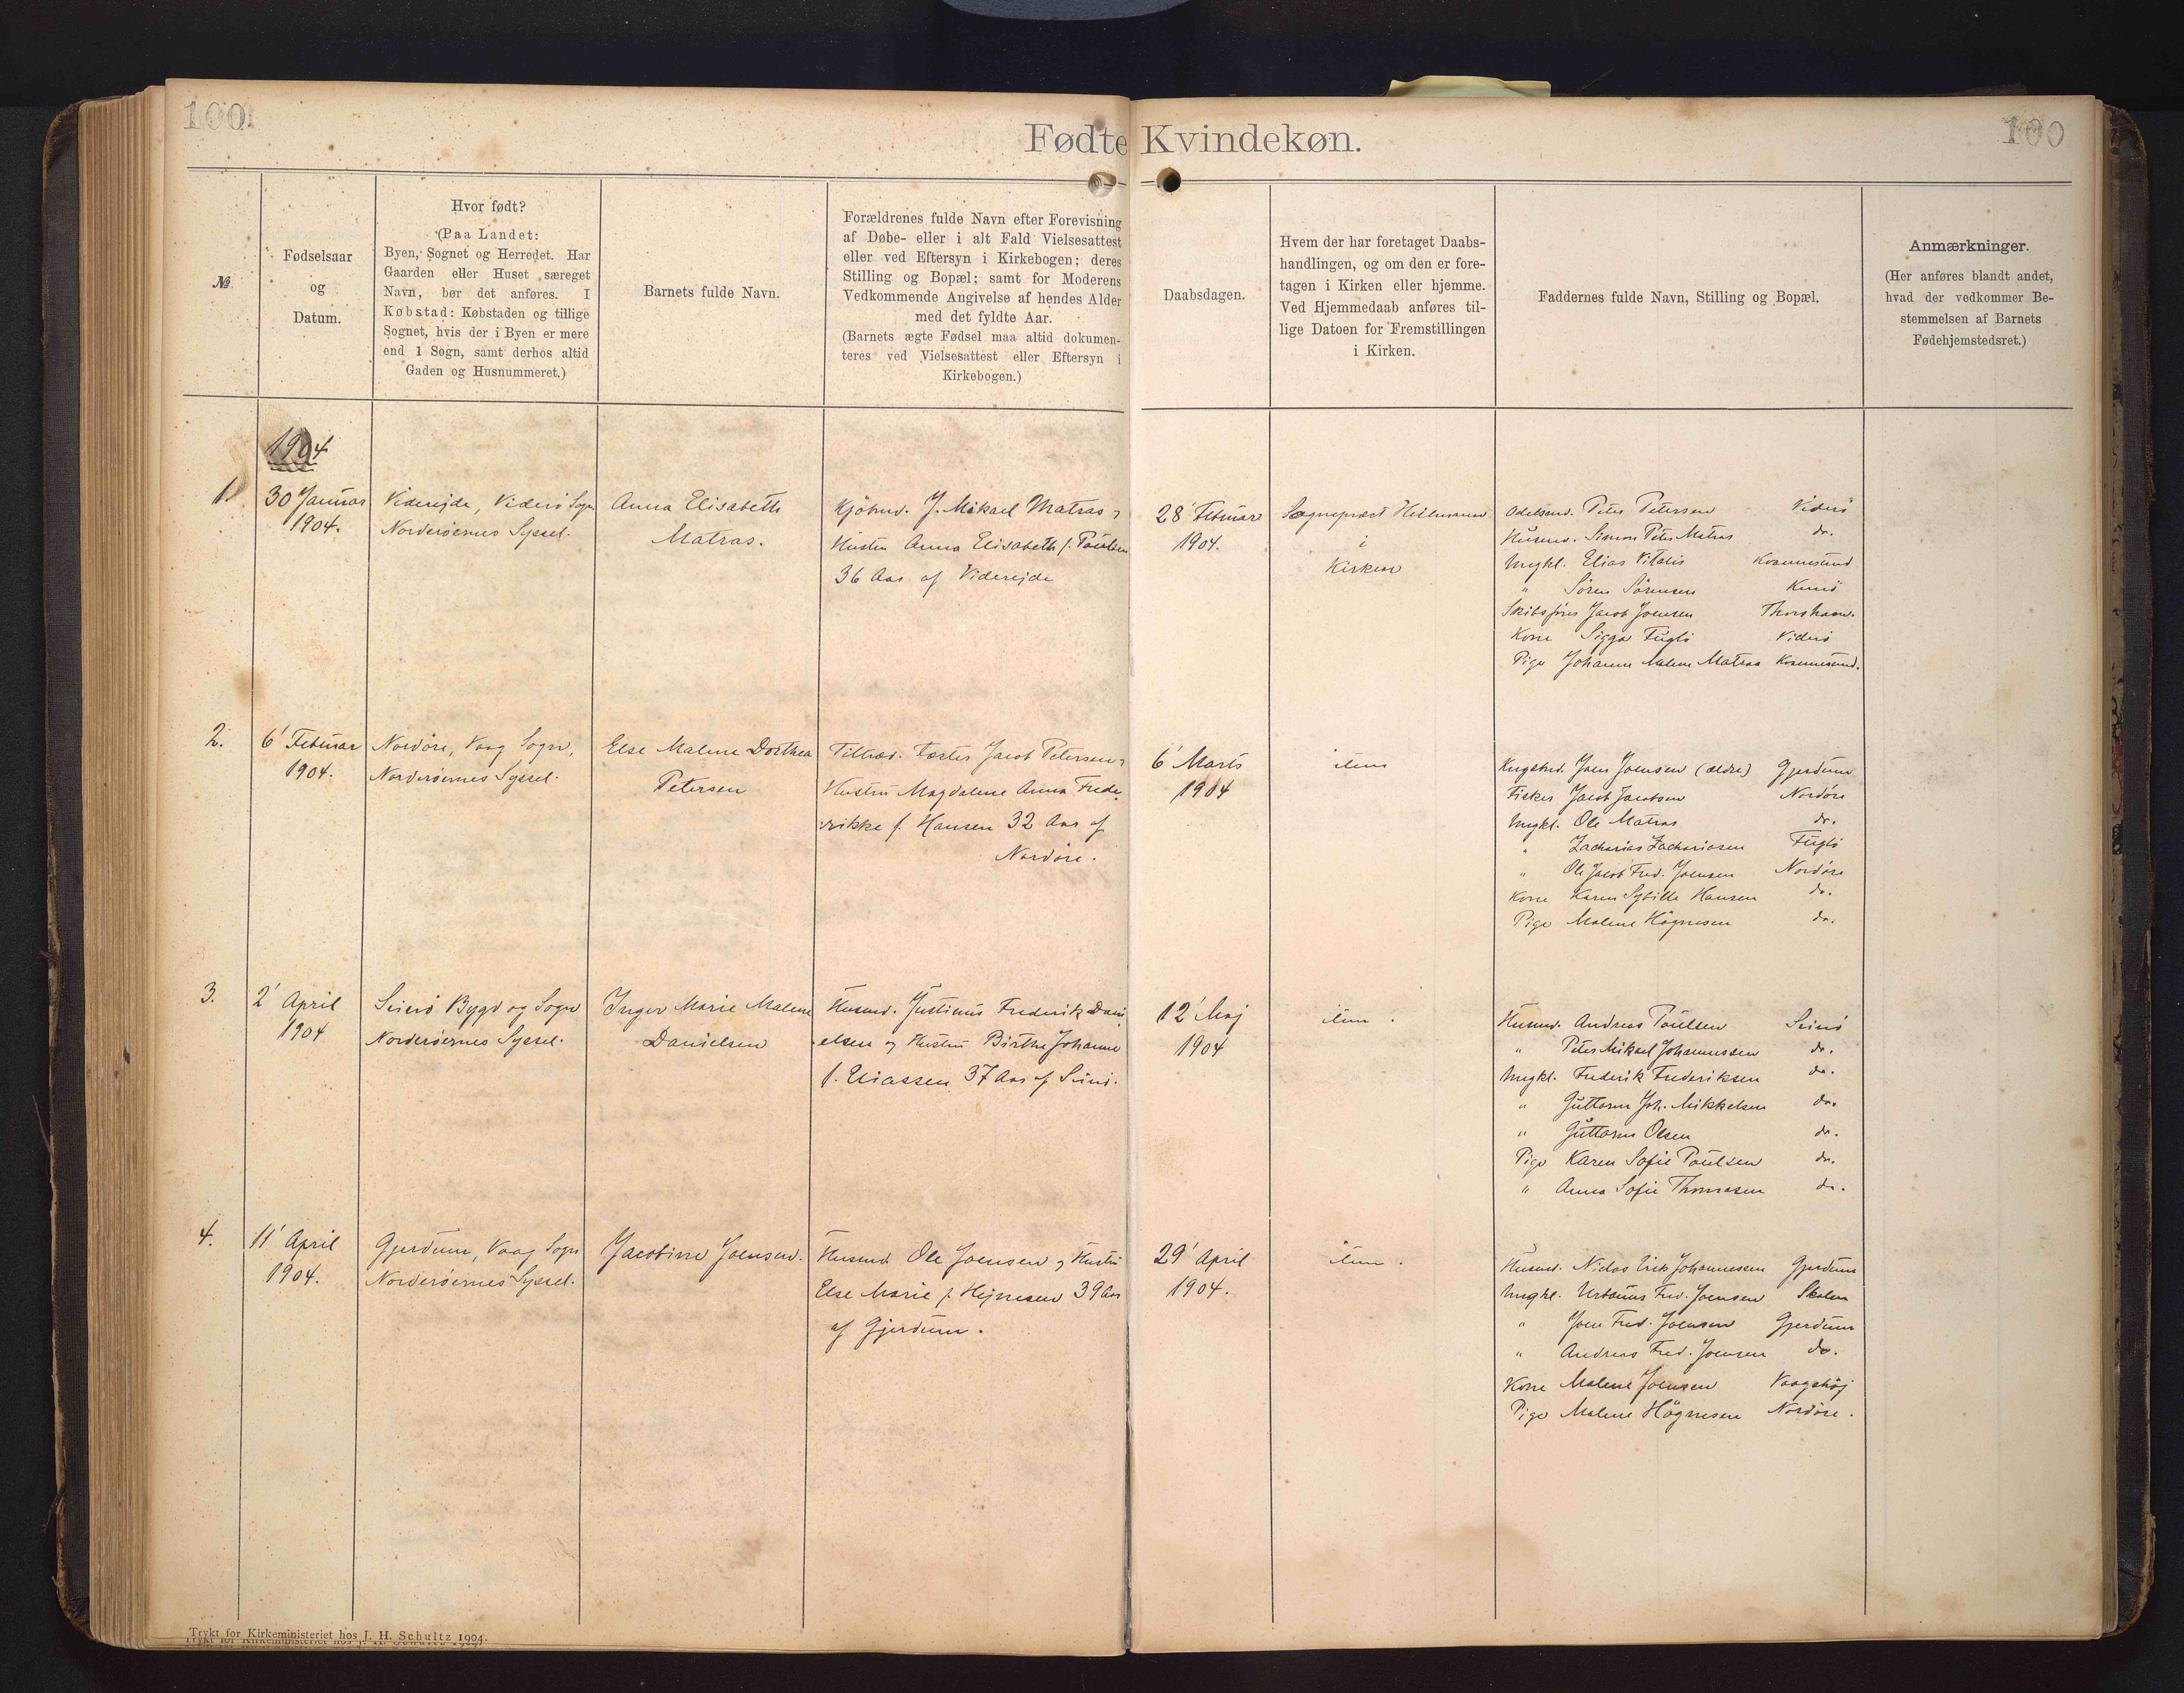 100
100
Fødte Kvindekøn.
№
Fødselsaar
og
Datum.
Hvor født?
(Paa Landet:
Byen, Sognet og Herredet. Har
Gaarden eller Huset særeget
Navn, bør det anføres. I
Købstad: Købstaden og tillige
Sognet, hvis der i Byen er mere
end 1 Sogn, samt derhos altid
Gaden og Husnummeret.)
Barnets fulde Navn.
Forældrenes fulde Navn efter Forevisning
af Døbe- eller i alt Fald Vielsesattest
eller ved Eftersyn i Kirkebogen; deres
Stilling og Bopæl; samt for Moderens
Vedkommende Angivelse af hendes Alder
med det fyldte Aar.
(Barnets ægte Fødsel maa altid dokumen-
teres ved Vielsesattest eller Eftersyn i
Kirkebogen.)
Daabsdagen.
Hvem der har foretaget Daabs-
handlingen, og om den er fore-
tagen i Kirken eller hjemme.
Ved Hjemmedaab anføres til-
lige Datoen for Fremstillingen
i Kirken.
Faddernes fulde Navn, Stilling og Bopæl.
Anmærkninger.
(Her anføres blandt andet,
hvad der vedkommer Be-
stemmelsen af Barnets
Fødehjemstedsret.)
1904
1.
30 Januar
1904.
Viderejde, Viderö Sogn
Norderöernes Syssel.
Anna Elisabeth
Matras.
Kjöbmd. J. Mikael Matras og
Hustru Anna Elisabeth f. Poulsen
36 Aar af Viderejde
28' Februar
1904.
Sognepræst Heilmann
i
Kirken
Odelsmd. Peter Petersen Viderö
Husmd. Simon Peter Matras do.
Ungkl. Elias Vitalis Kvannesund
" Sören Sörensen Kunö
Skibsförer Jacob Joensen Thorshavn.
Kone Sigga Fuglö Viderö
Pige Johanne Malene Matras Kvannesund.
2.
6' Februar
1904.
Nordöre, Vaag Sogn,
Norderöernes Syssel.
Else Malene Dorthea
Petersen
Tiltræd. Fæster Jacob Petersen og
Hustru Magdalene Anna Frede
rikke f. Hansen 32 Aar af
Nordöre.
6' Marts
1904
item
Kngsbd. Joen Joensen (ældre) Gjerdum
Fisker Jacob Jacobsen Nordöre
Ungkl. Ole Matras do.
" Zacharias Zachariasen Fuglö
" Ole Jacob Fred. Joensen Nordöre
Kone Karen Sybille Hansen do.
Pige Malene Högnesen do.
3.
2' April
1904
Svinö Bygd og Sogn
Norderöernes Syssel.
Inger Marie Malene
Danielsen
Husmd. Justinus Frederik Dani
elsen og Hustru Birthe Johanne
f. Eliassen 37 Aar af Svinö.
12' Maj
1904
item.
Husmd. Andreas Poulsen Svinö
" Peter Mikael Johannessen do.
Ungkl. Frederik Frederiksen do.
" Guttorm Joh. Mikkelsen do.
" Guttorm Olsen do.
Pige Karen Sofie Poulsen do.
" Anna Sofie Thomasen do.
4.
11' April
1904.
Gjerdum, Vaag Sogn
Norderöernes Syssel.
Jacobine Joensen.
Husmd. Ole Joensen og Hustru
Else Marie f. Hejnesen 39 Aar
af Gjerdum.
29' April
1904.
item.
Husmd. Niclas Erik Johannessen Gjerdum
Ungkl. Urbanus Fred. Joensen Skalen
" Joen Fred. Joensen Gjerdum
" Andreas Fred. Joensen do.
Kone Malene Joensen Vaagshöj
Pige Malene Högnesen Nordöre.
Trykt for Kirkeministeriet hos J. H. Schultz 1904.